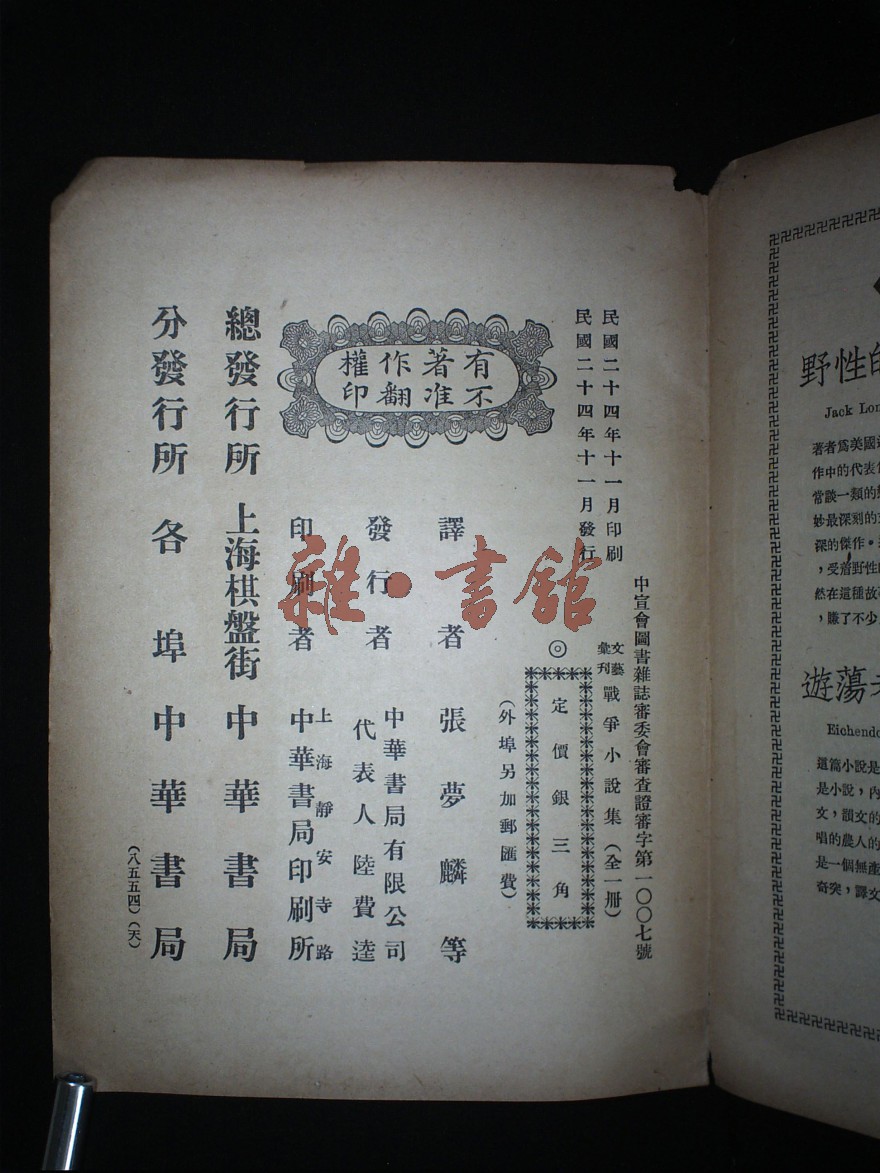 中宣會圖書雜誌審委會審查證審字第一〇〇七號
民國二十四年十一月印刷
民國二十四年十一月發行
文藝彙刊
戰爭小說集（全一冊）
◎
定價銀三角
（外埠另加郵匯費）
有著作權
不准翻印
譯者 張夢麟等
發行者 中華書局有限公司
代表人 陸費逵
印刷者 上海靜安寺路
中華書局印刷所
總發行所 上海棋盤街 中華書局
分發行所 各埠 中華書局
（八五五四）（天）
雜·書館
野性的
Jack Lon
著者爲美國
作中的代表
常談一類的
妙最深刻的
深的傑作。
，受着野性的
然在這種故
，賺了不少
遊蕩
Eichendo
這篇小說是
是小說，內
文，韻文的
唱的農人的
是一個無產
奇突，譯文